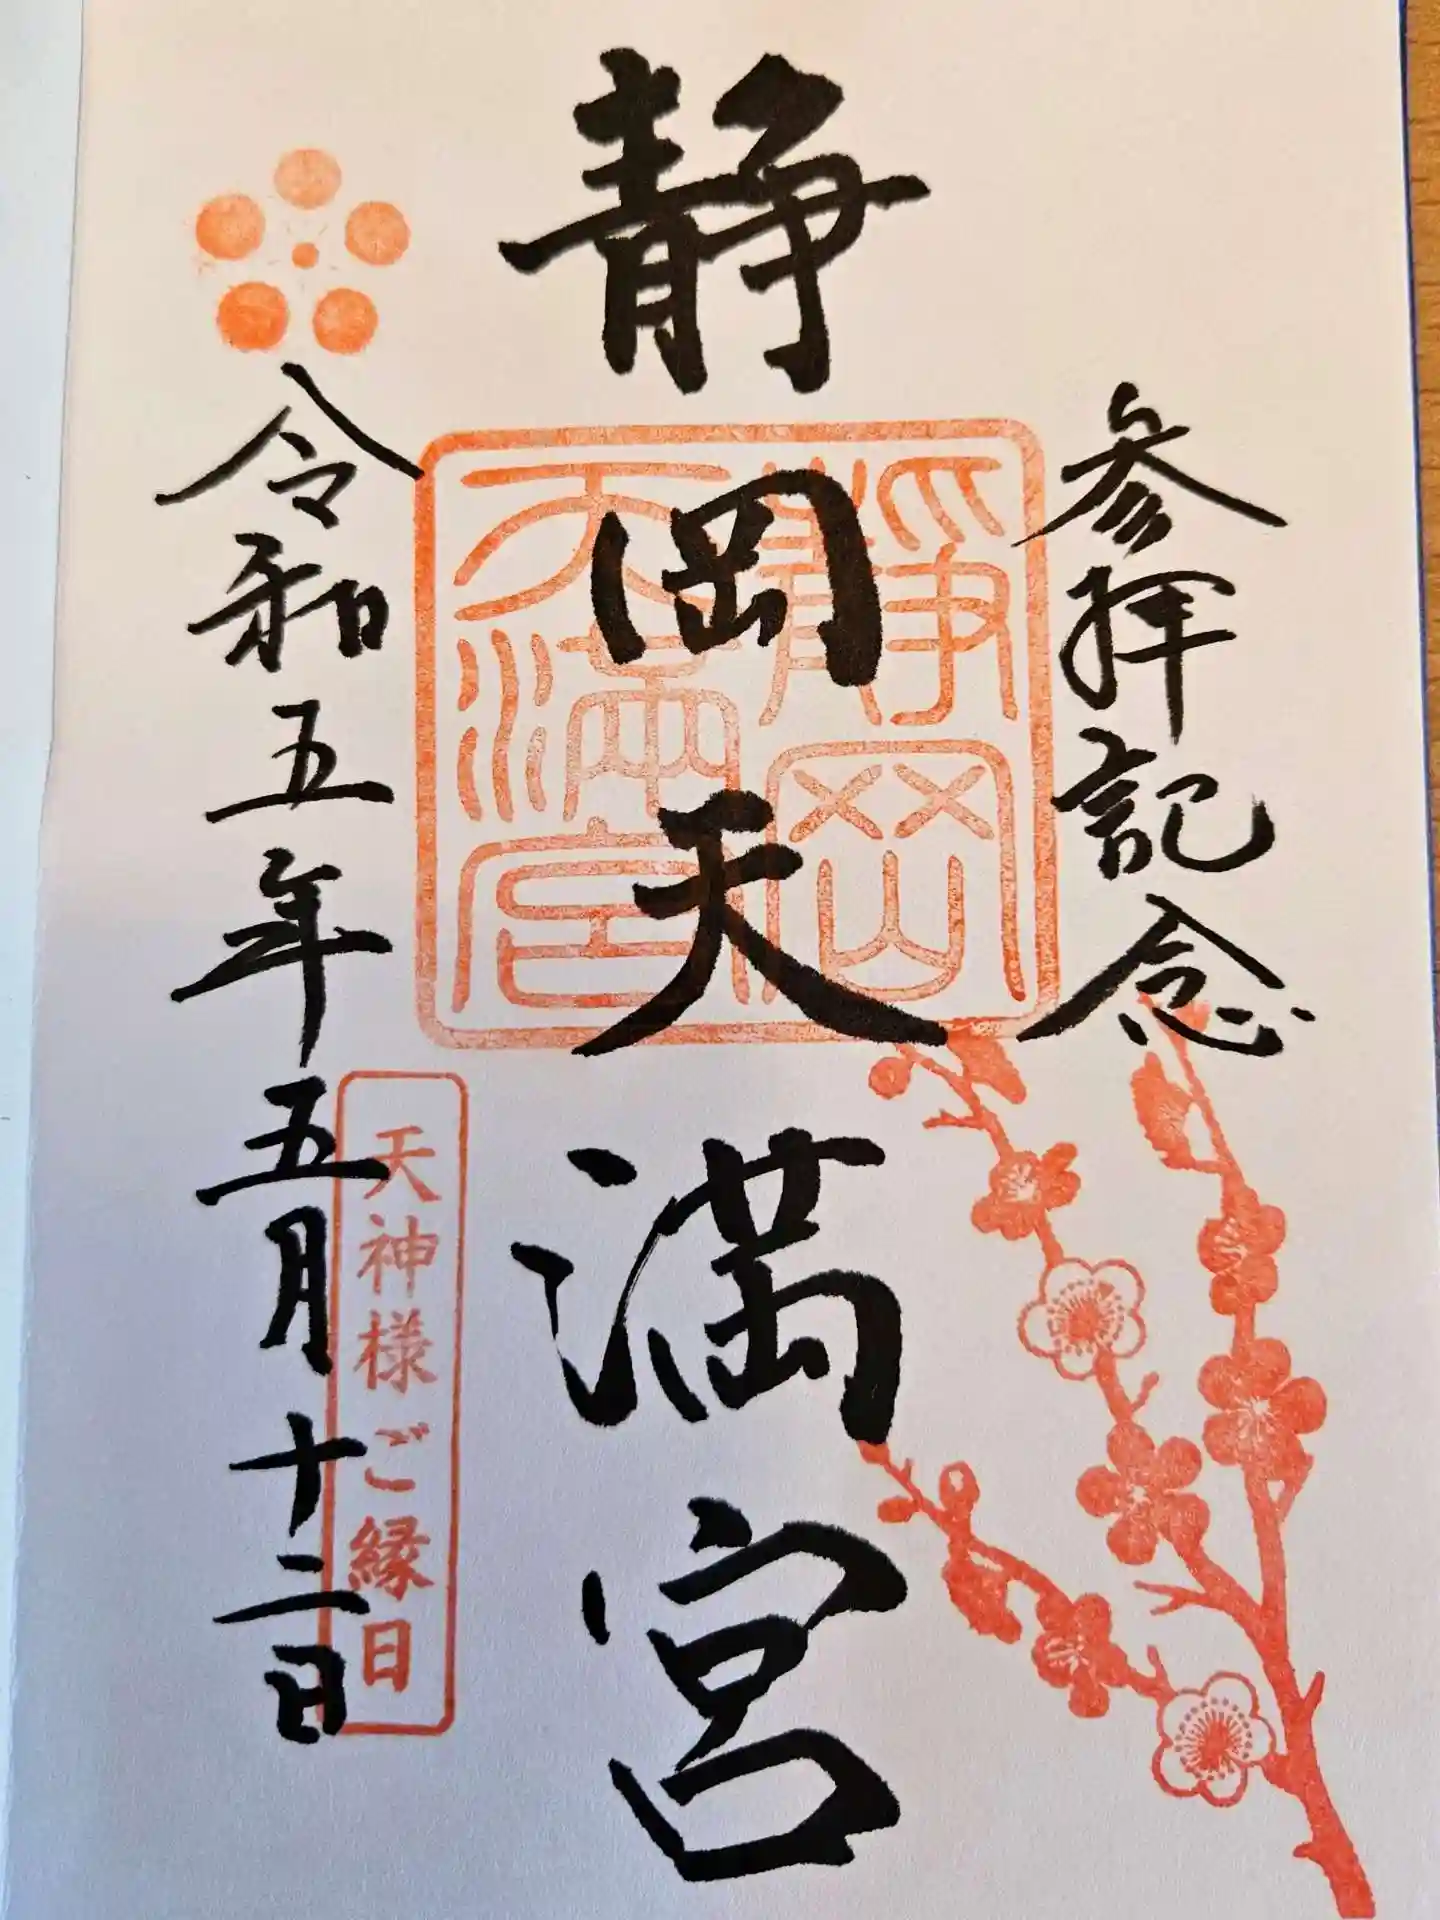 参拝記念
静岡天満宮
靜岡
天満宮
天神様ご縁日
令和五年五月十二日